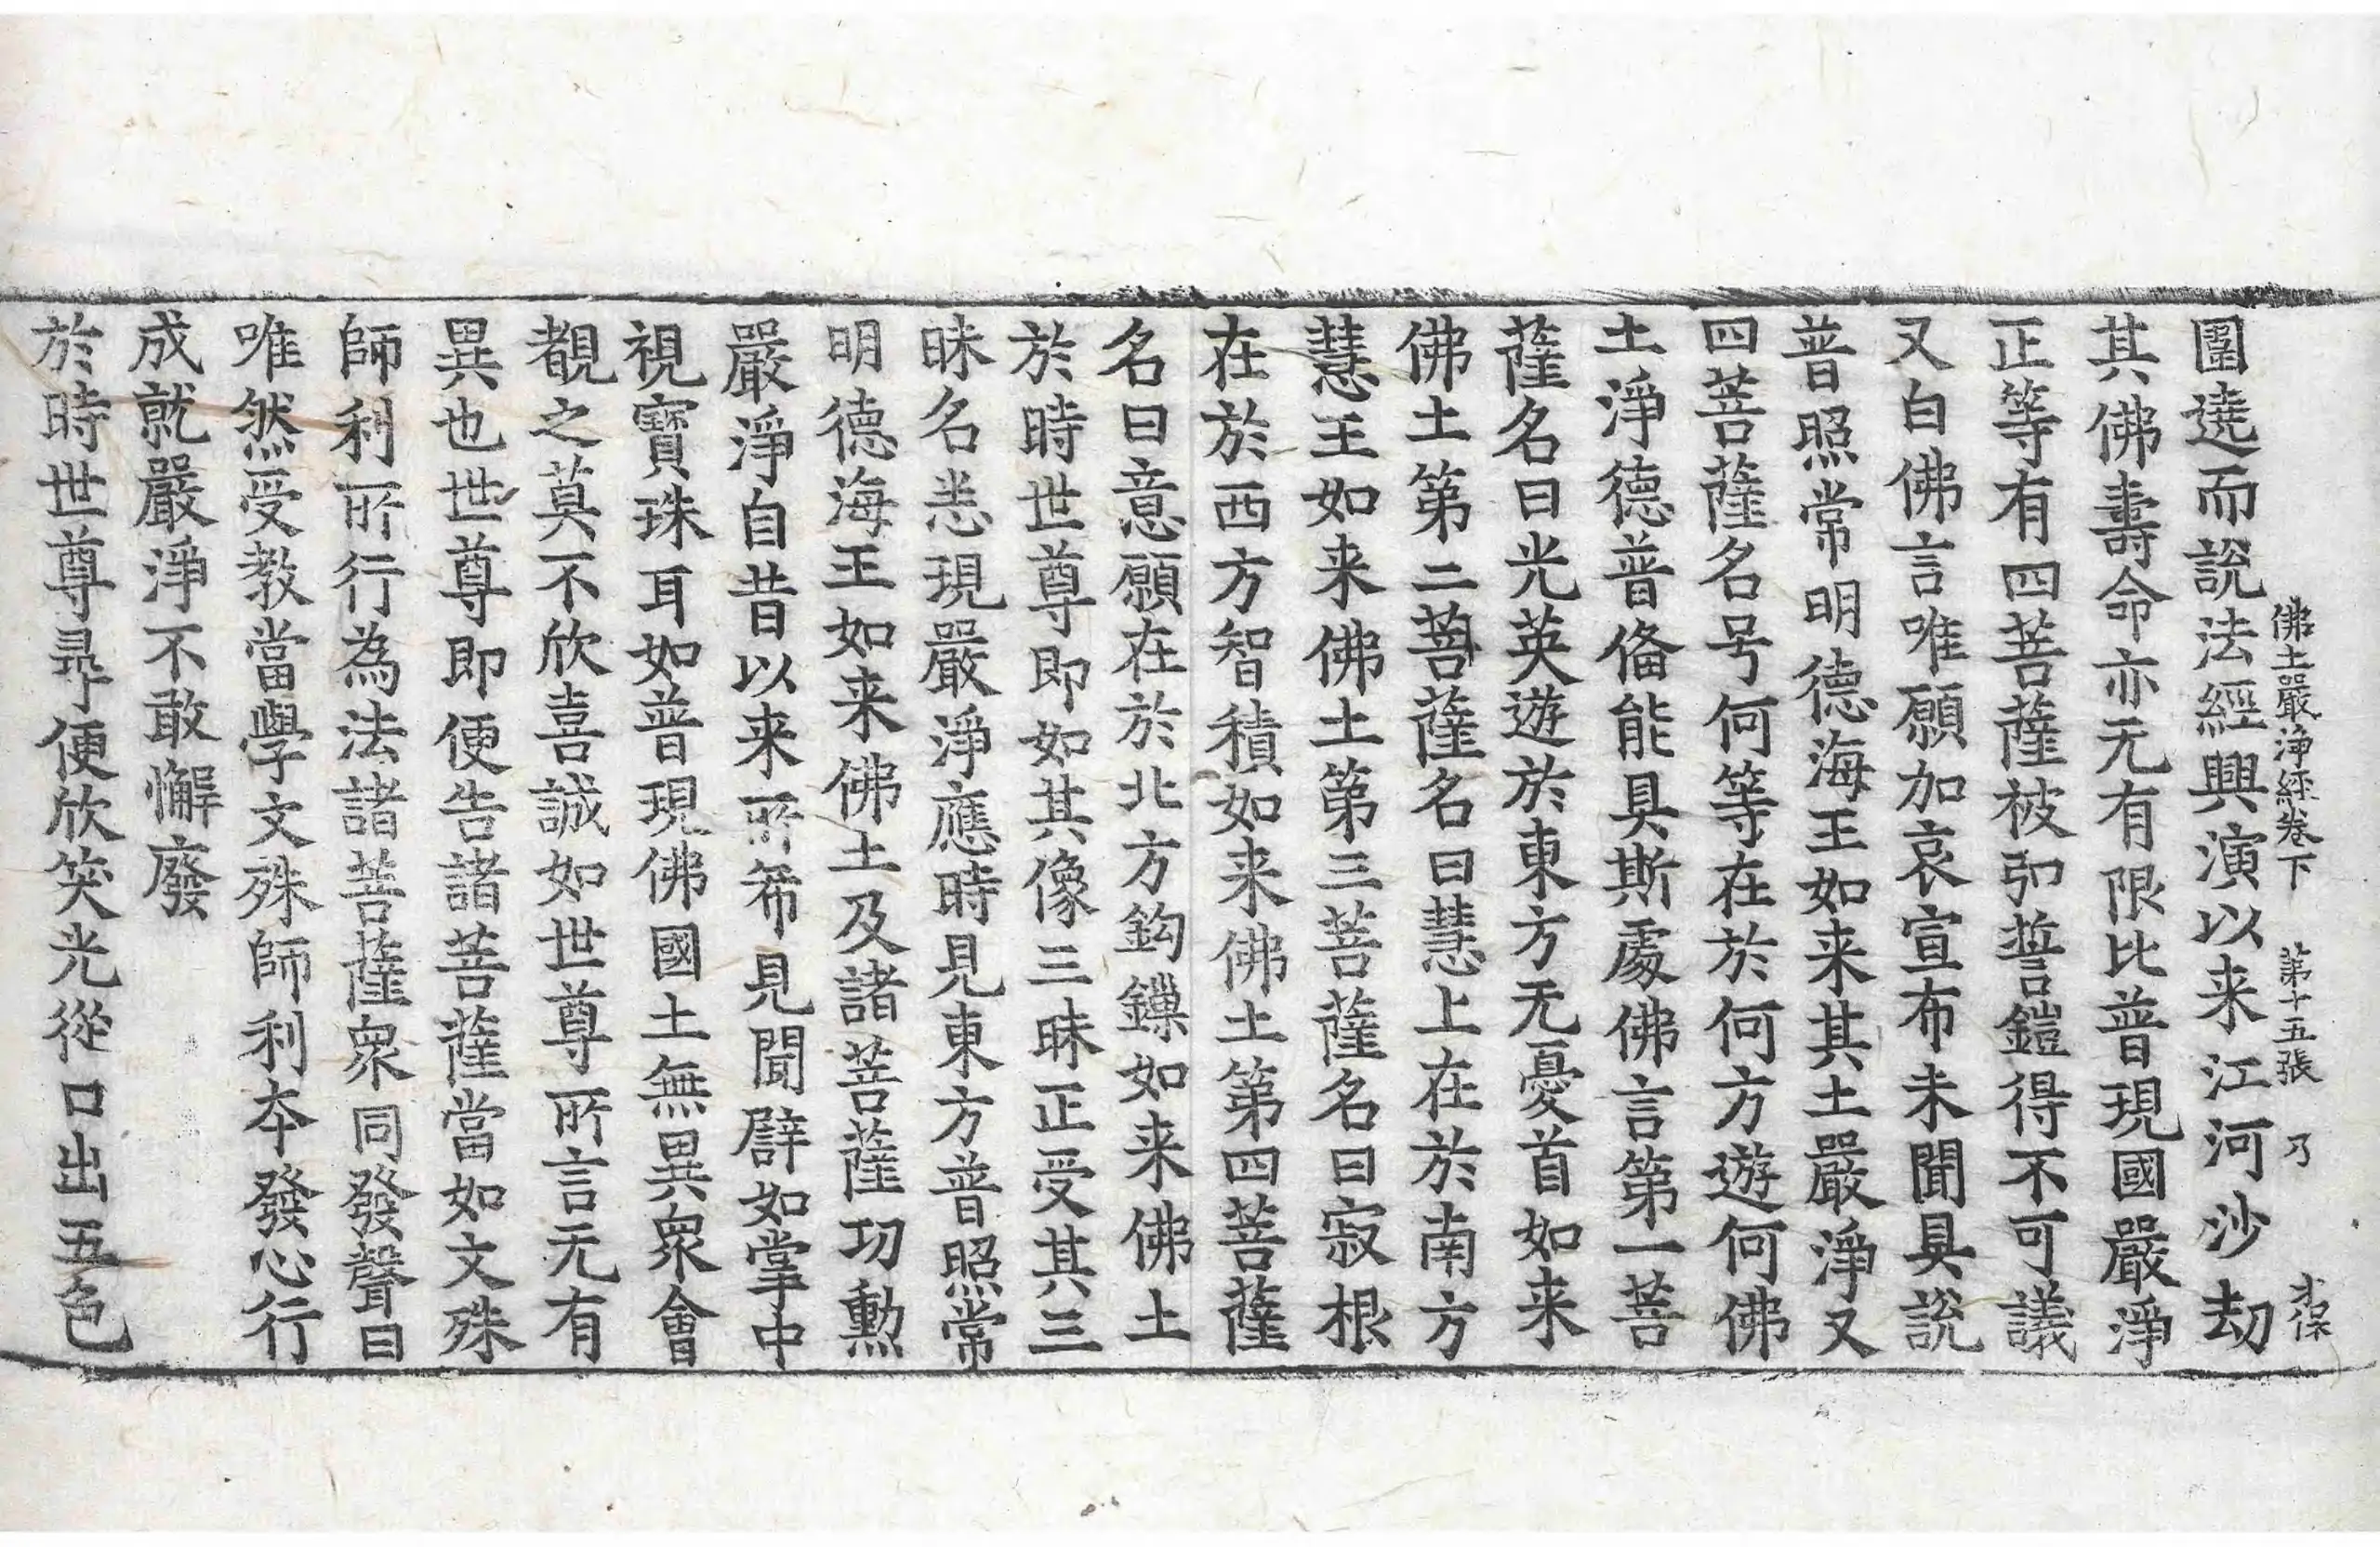 佛土嚴淨經卷下 第十五張 乃
圍遶而說法經興演以来江河沙劫
其佛壽命亦无有限比普現國嚴淨
正等有四菩薩被䣛誓鎧得不可議
又白佛言唯願加哀宣布未聞具說
普照常明德海王如来其土嚴淨又
四菩薩名号何等在於何方遊何佛
土淨德普俻能具斯處佛言第一菩
薩名曰光英遊於東方无憂首如来
佛土第二菩薩名曰慧上在於南方
慧王如来佛土第三菩薩名曰寂根
在於西方智積如来佛土第四菩薩
名曰意願在於北方鈎鏁如来佛土
於時世尊即如其像三昧正受其三
昧名恙現嚴淨應時見東方普照常
明德海王如来佛土及諸菩薩功勲
嚴淨自昔以来所希見聞辟如掌中
視寶珠耳如普現佛國土無異衆會
覩之莫不欣喜誠如世尊所言无有
異也世尊即便告諸菩薩當如文殊
師利所行為法諸菩薩衆同發聲曰
唯然受教當學文殊師利夲發心行
成就嚴淨不敢懈廢
於時世尊尋便欣笑光從口出五色